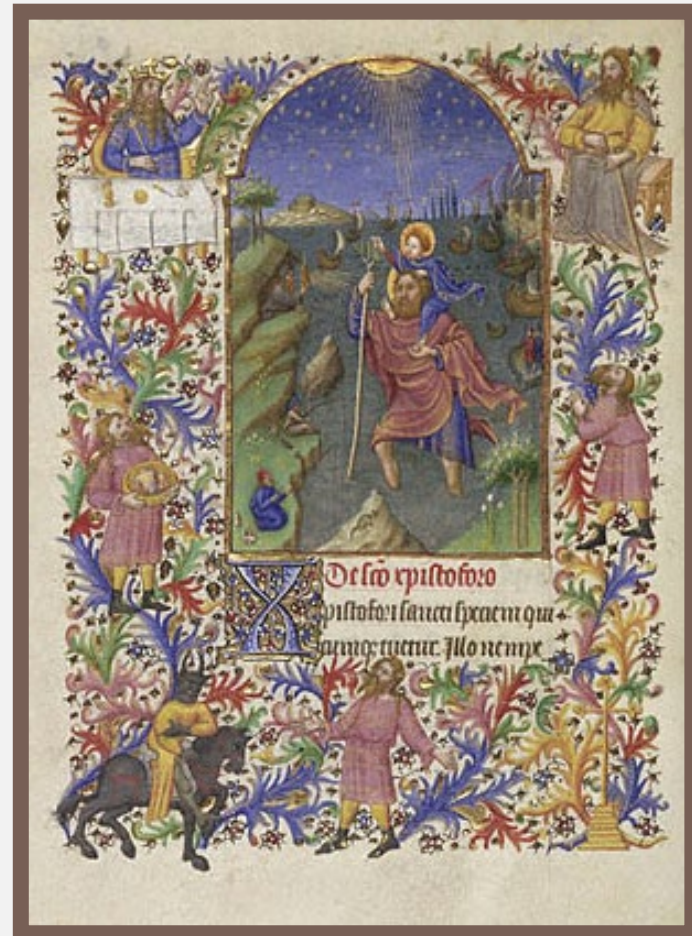 De sco xpistoforo
Xpistofori sancti speciem qui
cumq; tuetur. Illo nempe